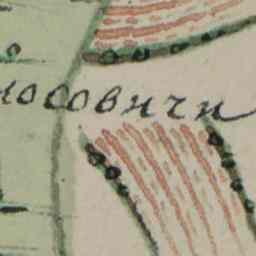 лосовичи